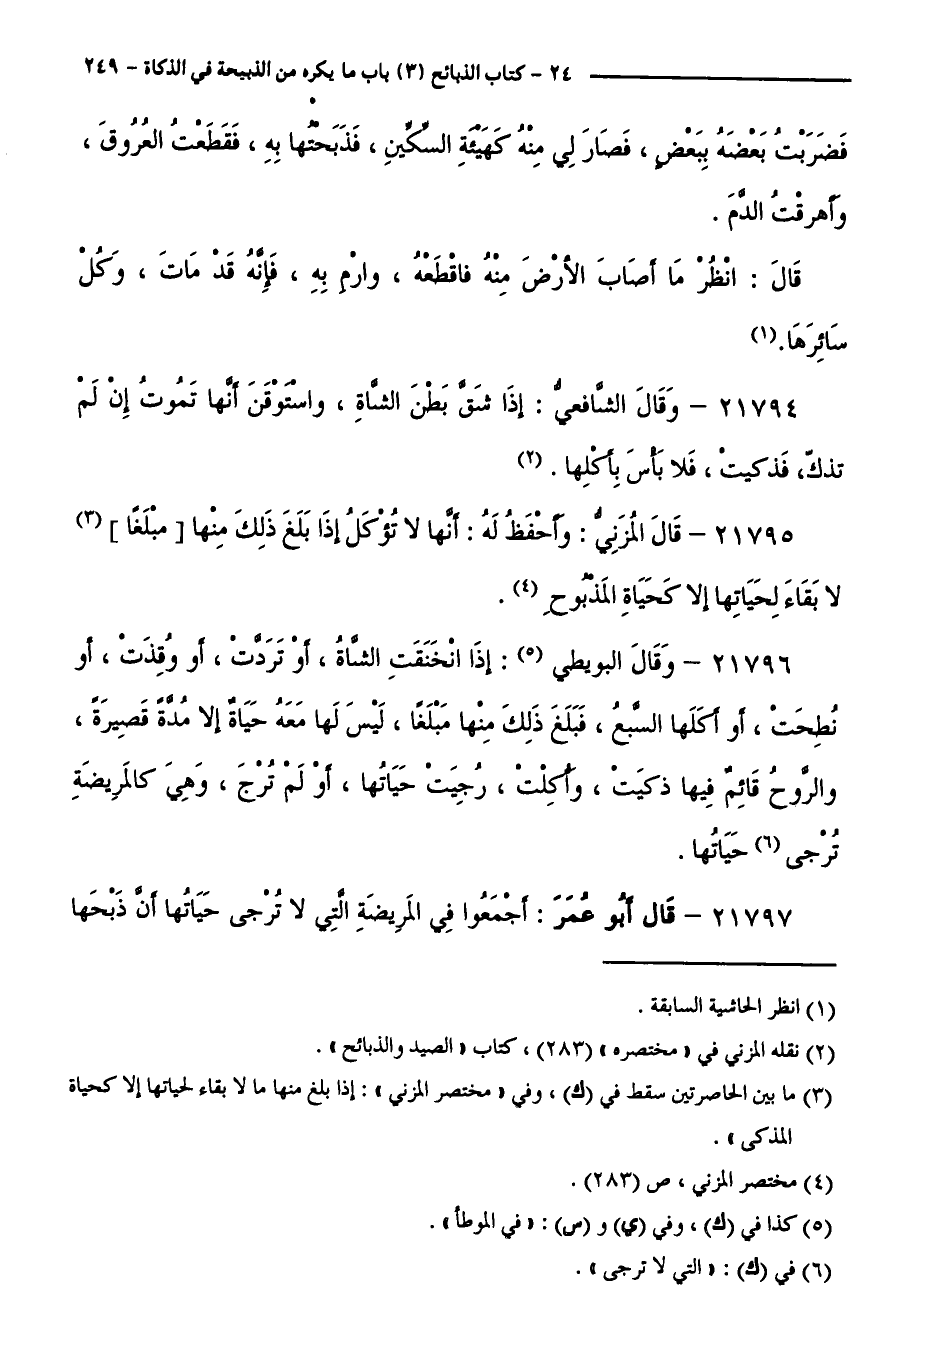 ٢٤ - كتاب الذبائح (٣) باب ما يكره من الذبيحة في الذكاة - ٢٤٩
فَضَرَبْتُ بَعْضَهُ بِبَعْضٍ ، فَصَارَ لِي مِنْهُ كَهَيْئَةِ السكِّينِ ، فَذَبَحْتُها بِهِ ، فَقَطَعْتُ العُرُوقَ ،
وَأَهرقْتُ الدَّمَ .
قَالَ : انْظُرْ مَا أصَابَ الأرْضَ مِنْهُ فاقْطَعْهُ ، وارْمِ بِهِ ، فَإِنَّهُ قَدْ مَاتَ ، وَكُلْ
سَائِرَهَا.(١)
٢١٧٩٤ - وَقَالَ الشَّافعيُّ : إذَا شَقَّ بَطْنَ الشَّاةِ ، واسْتَوْقَنَ أَنَّها تَمُوتُ إنْ لَمْ
تذكّ، فَذكيتْ ، فَلا بَأْسَ بِأَكْلِها . (٢)
٢١٧٩٥ - قَالَ الُمزَنِيُّ : وَأَحْفَظُ لَهُ : أَنَّها لا تُؤْكَلُ إذَا بَلَغَ ذَلِكَ مِنْها [ مبْلَغًا ] (٣)
لا بَقَاءَ لِحَيَاتِها إلا كَحَيَاةِ المَذْبُوحِ (٤) .
٢١٧٩٦ - وَقَالَ البويطي (٥) : إذَا انْخَنَقَتِ الشَّاةُ ، أوْ تَرَدَّتْ ، أو وُقِذَتْ ، أو
نُطِحَتْ ، أو أكَلَها السَّبعُ ، فَبَلَغَ ذَلِكَ مِنْها مَبْلَغًا ، لَيْسَ لَها مَعَهُ حَيَاةٌ إلا مُدَّةً قَصِيرَةً ،
والرُّوحُ قَائِمٌ فِيها ذكيَتْ ، وَأُكِلْتْ ، رُجِيَتْ حَيَاتُها ، أوْ لَمْ تُرْجَ ، وَهِيَ كالمَرِيضَةِ
تُرْجى (٦) حَيَاتُها .
٢١٧٩٧ - قَال أَبُو عُمَرَ : أجْمَعُوا فِي المَرِيضَةِ الَّتِي لا تُرْجى حَيَاتُها أنَّ ذَبْحَها
(١) انظر الحاشية السابقة .
(٢) نقله المزني في « مختصره » (٢٨٣) ، كتاب « الصيد والذبائح » .
(٣) ما بين الحاصرتين سقط في (ك) ، وفي « مختصر المزني » : إذا بلغ منها ما لا بقاء لحياتها إلا كحياة
المذكى » .
(٤) مختصر المزني ، ص (٢٨٣) .
(٥) كذا في (ك) ، وفي (ي) و (س) : « في الموطأ » .
(٦) في (ك) : « التي لا ترجى » .